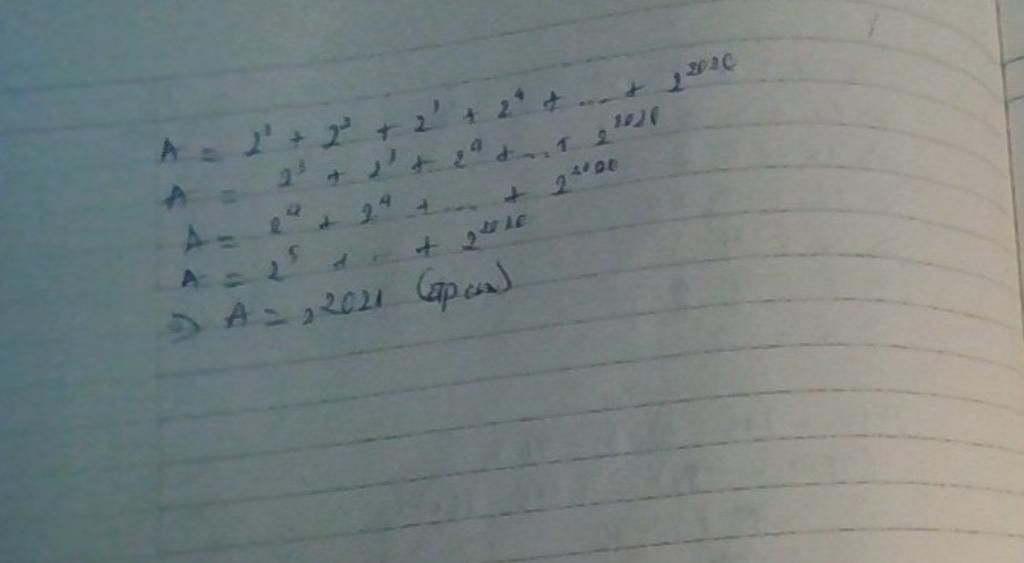 A = 2² + 2² + 2³ + 2⁴ + ... + 2²⁰²⁰
A = 2³ + 2³ + 2⁴ + ... + 2²⁰²⁰
A = 2⁴ + 2⁴ + ... + 2²⁰²⁰
A = 2⁵ + ... + 2²⁰²⁰
⇒ A = 2²⁰²¹ (đpcm)